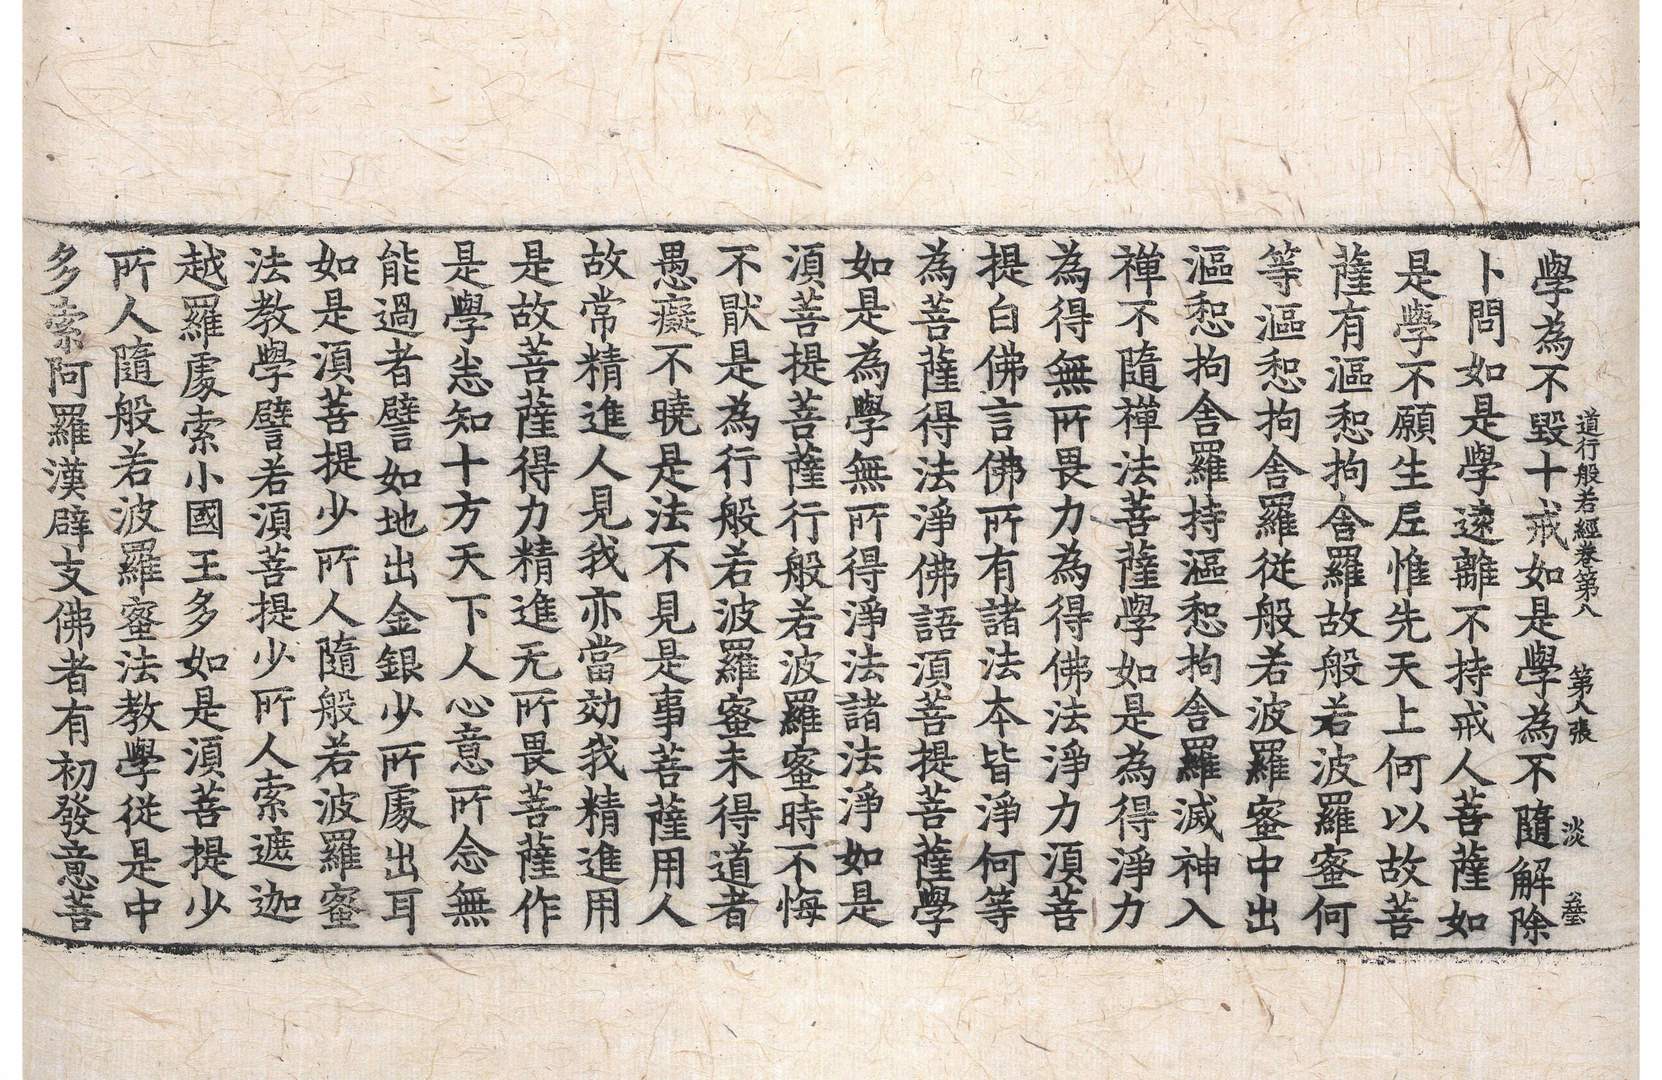 道行般若經卷第八 第八張 淡
學為不毀十戒如是學為不隨解除
卜問如是學遠離不持戒人菩薩如
是學不願生𫝑惟先天上何以故菩
薩有漚惒拘舍羅故般若波羅蜜何
等漚惒拘舍羅從般若波羅蜜中出
漚惒拘舍羅持漚惒拘舍羅滅神入
禪不隨禪法菩薩學如是為得淨力
為得無所畏力為得佛法淨力須菩
提白佛言佛所有諸法本皆淨何等
為菩薩得法淨佛語須菩提菩薩學
如是為學無所得淨法諸法淨如是
須菩提菩薩行般若波羅蜜時不悔
不猒是為行般若波羅蜜未得道者
愚癡不曉是法不見是事菩薩用人
故常精進人見我亦當効我精進用
是故菩薩得力精進无所畏菩薩作
是學悉知十方天下人心意所念無
能過者譬如地出金銀少所處出耳
如是須菩提少所人隨般若波羅蜜
法教學譬若須菩提少所人索遮迦
越羅處索小國王多如是須菩提少
所人隨般若波羅蜜法教學從是中
多索阿羅漢辟支佛者有初發意菩